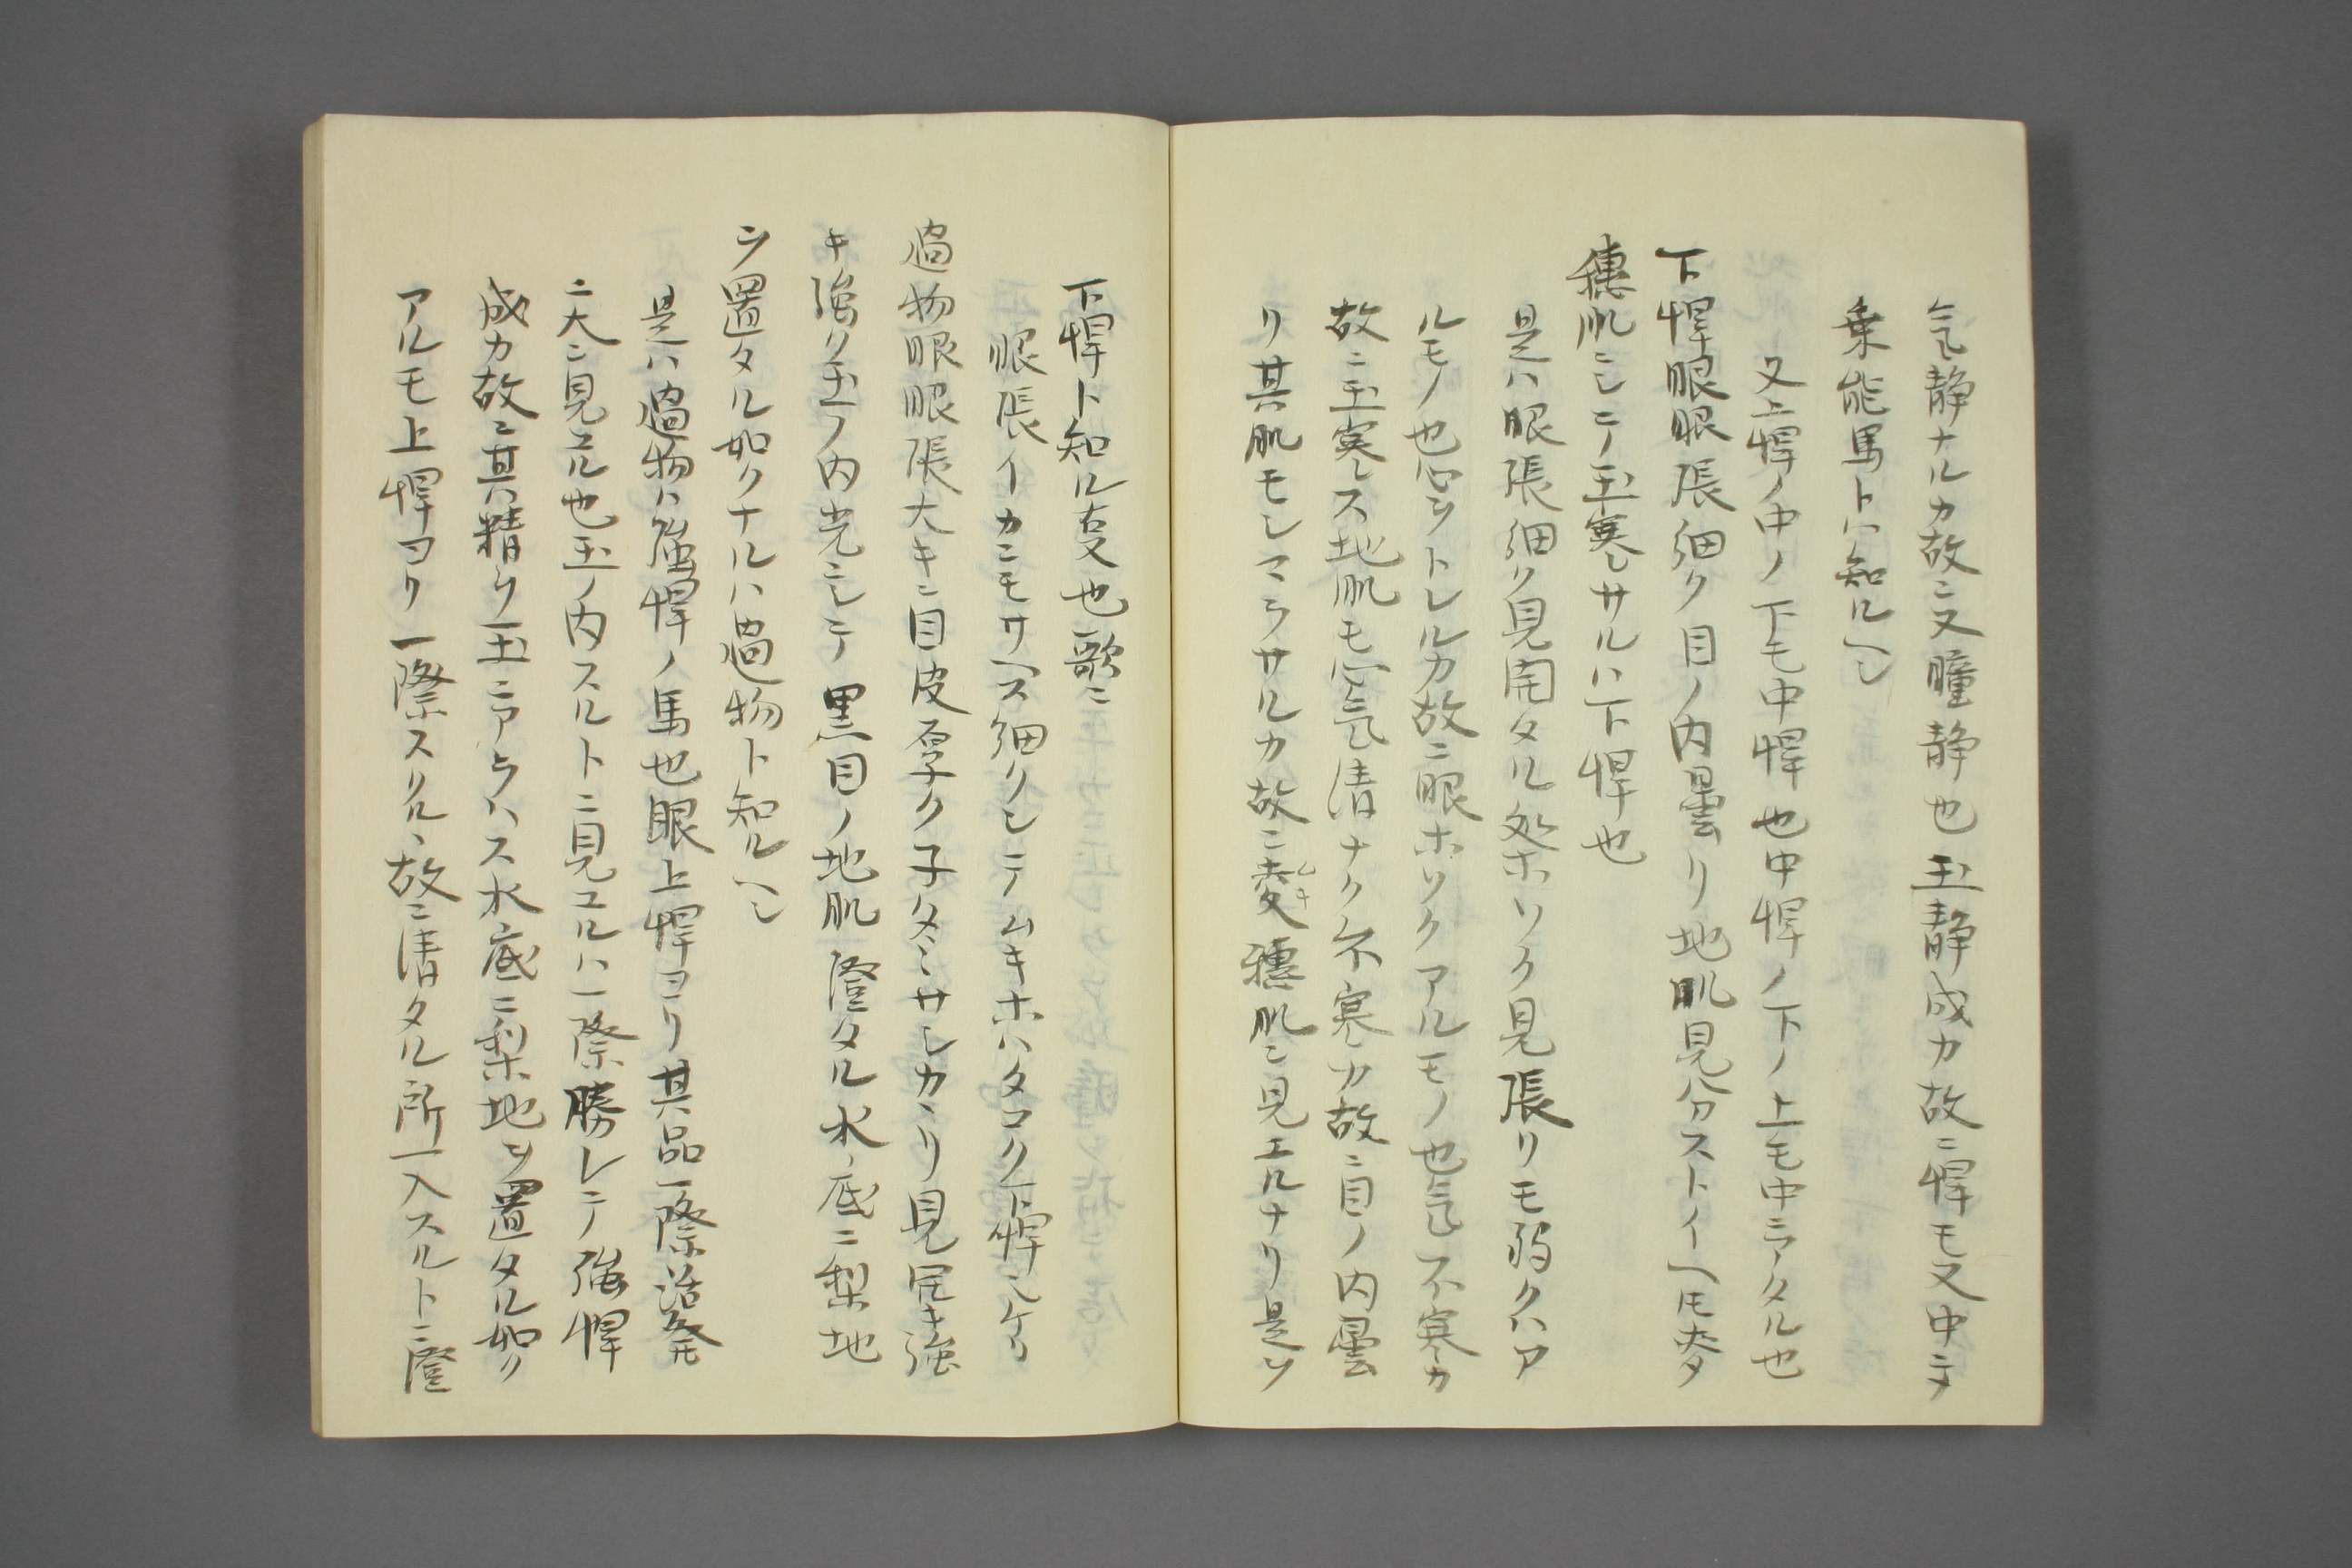 气静ナルカ故ニ又瞳静也玉静成カ故ニ悍モ又中ニテ
乗能馬トハ知ルヘシ
又上悍ノ中ノ下モ中悍也中悍ノ下ノ上モ中ニアタル也
下悍眼眼張細ク目ノ内曇リ地肌見分ストイヘトモ麥
穗肌ニシテ玉寒シサルハ下悍也
是ハ眼張細ク見開タル処ホソク見張リモ弱クハア
ルモノ也心ヲトレルカ故ニ眼ホソクアルモノ也气不寒カ
故ニ玉寒レス地肌モ心气清ナク不寒カ故ニ目ノ内曇
リ其肌モシマラサルカ故ニ麥穗肌ニ見エルナリ是ヲ
下悍ト知ル支也歌ニ
眼張イカニモサヘス細クシテムキホハタコク下悍ニケリ
過物眼眼張大キニ目皮厚ク子タミサシカヽリ見尾キ強
キ強ク玉ノ内光ニシテ黒目ノ地肌澄タル水ノ底ニ梨地
ヲ置タル如クナルハ過物ト知ルヘシ
是ハ過物ハ強悍ノ馬也眼上悍ヨリ其品一際活発
ニ大ニ見ユル也玉ノ内スルトニ見ユルハ一際勝レテ強悍
成カ故ニ其精ク玉ニアラハス水ノ底ニ梨地ヲ置タル如ク
アルモ上悍ヨリ一際スクルヽ故ニ清タル所一入スルトニ澄